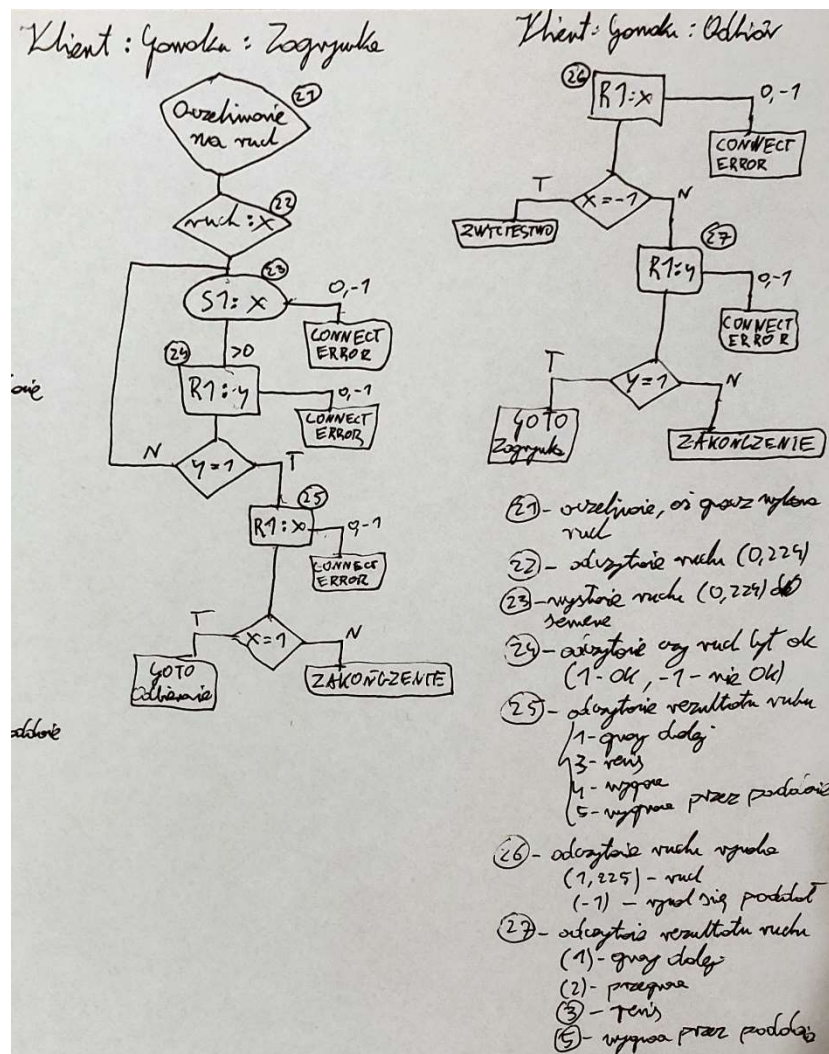 Klient : Gomoku : Zagrywka
21
Oczekiwanie
na ruch
22
ruch : x
23
S1: x
0,-1
CONNECT
ERROR
>0
24
R1: y
0,-1
CONNECT
ERROR
N
y=1
T
25
R1: x
0,-1
CONNECT
ERROR
T
x=1
N
GOTO
Odbieranie
ZAKOŃCZENIE
Klient: Gomoku : Odbiór
26
R1: x
0,-1
CONNECT
ERROR
T
x=-1
N
ZWYCIĘSTWO
27
R1: y
0,-1
CONNECT
ERROR
T
y=1
N
GOTO
Zagrywka
ZAKOŃCZENIE
21 - oczekiwanie, aż gracz wykona
ruch
22 - odczytanie ruchu (0,224)
23 - wysłanie ruchu (0,224) do
24 - odczytanie czy ruch był ok
(1 - OK, -1 - nie OK)
25 - odczytanie rezultatu ruchu
1 - gramy dalej
3 - remis
4 - wygrana
5 - wygrana przez poddanie
26 - odczytanie ruchu wroga
(1,225) - ruch
(-1) - wróg się poddał
27 - odczytanie rezultatu ruchu
(1) - gramy dalej
(2) - przegrana
3 - remis
5 - wygrana przez poddanie